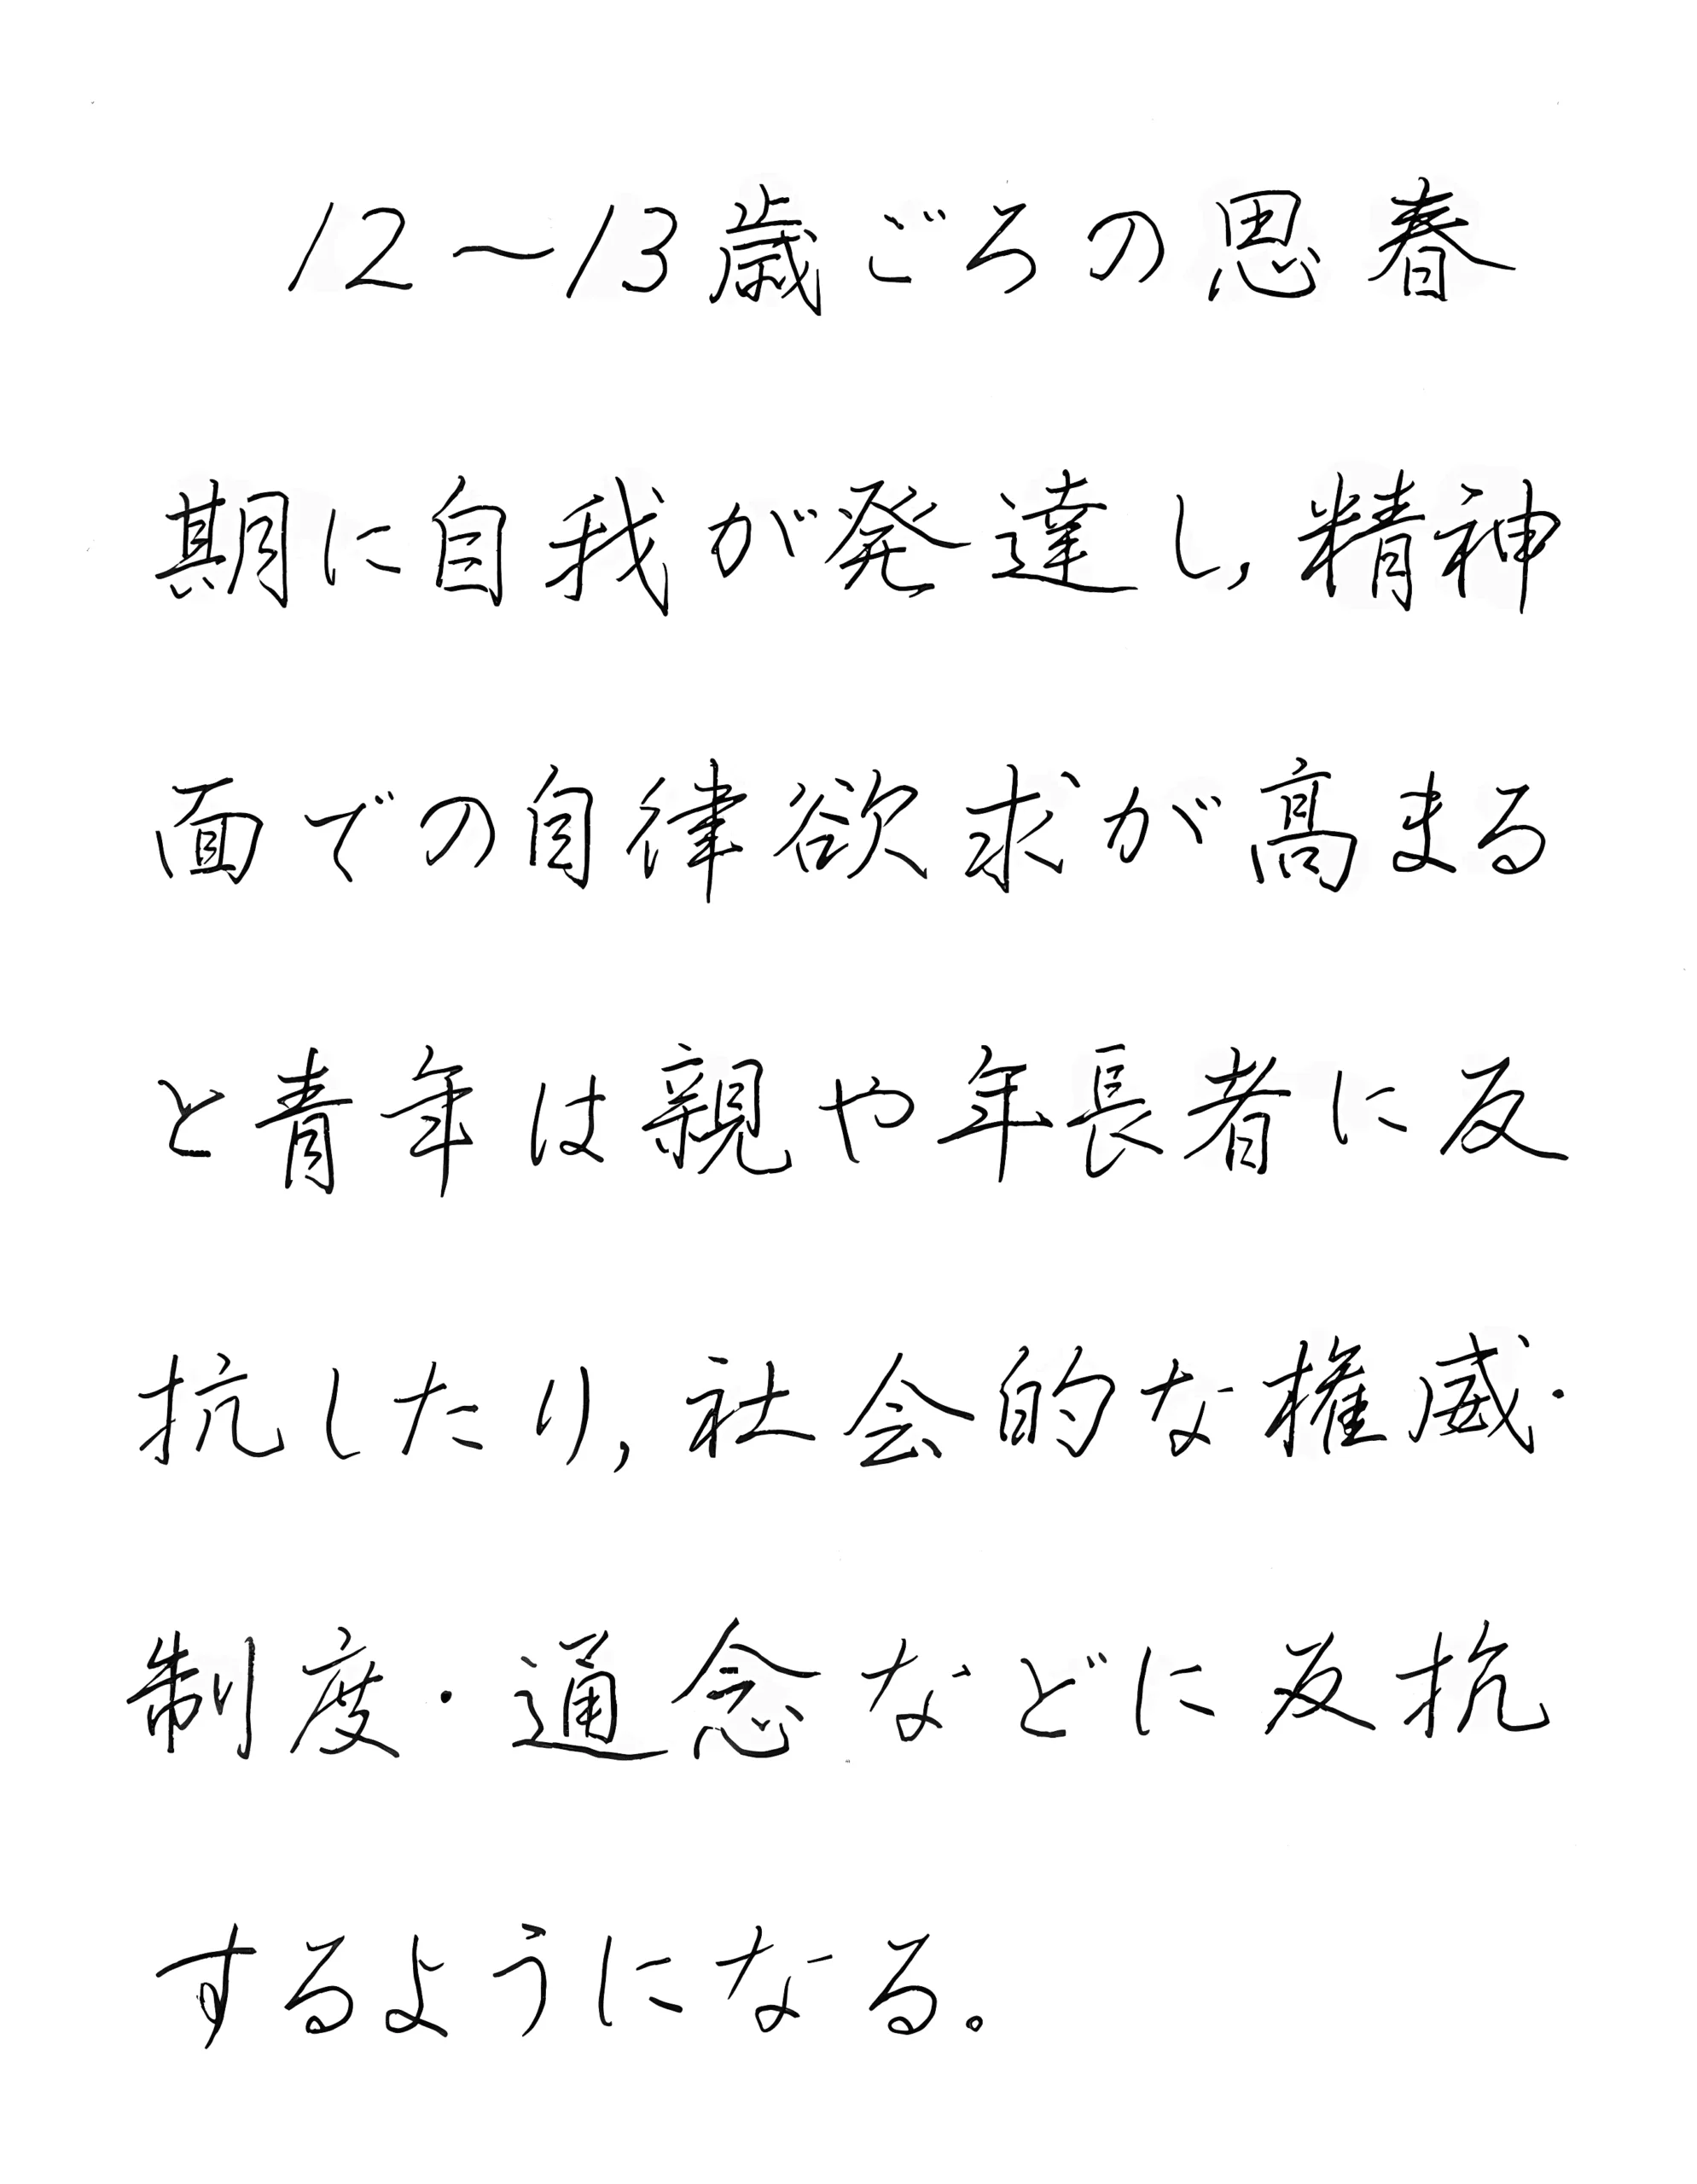 12〜13歳ごろの思春
期に自我が発達し,精神
面での自律欲求が高まる
と青年は親や年長者に反
抗したり,社会的な権威・
制度・通念などに反抗
するようになる。